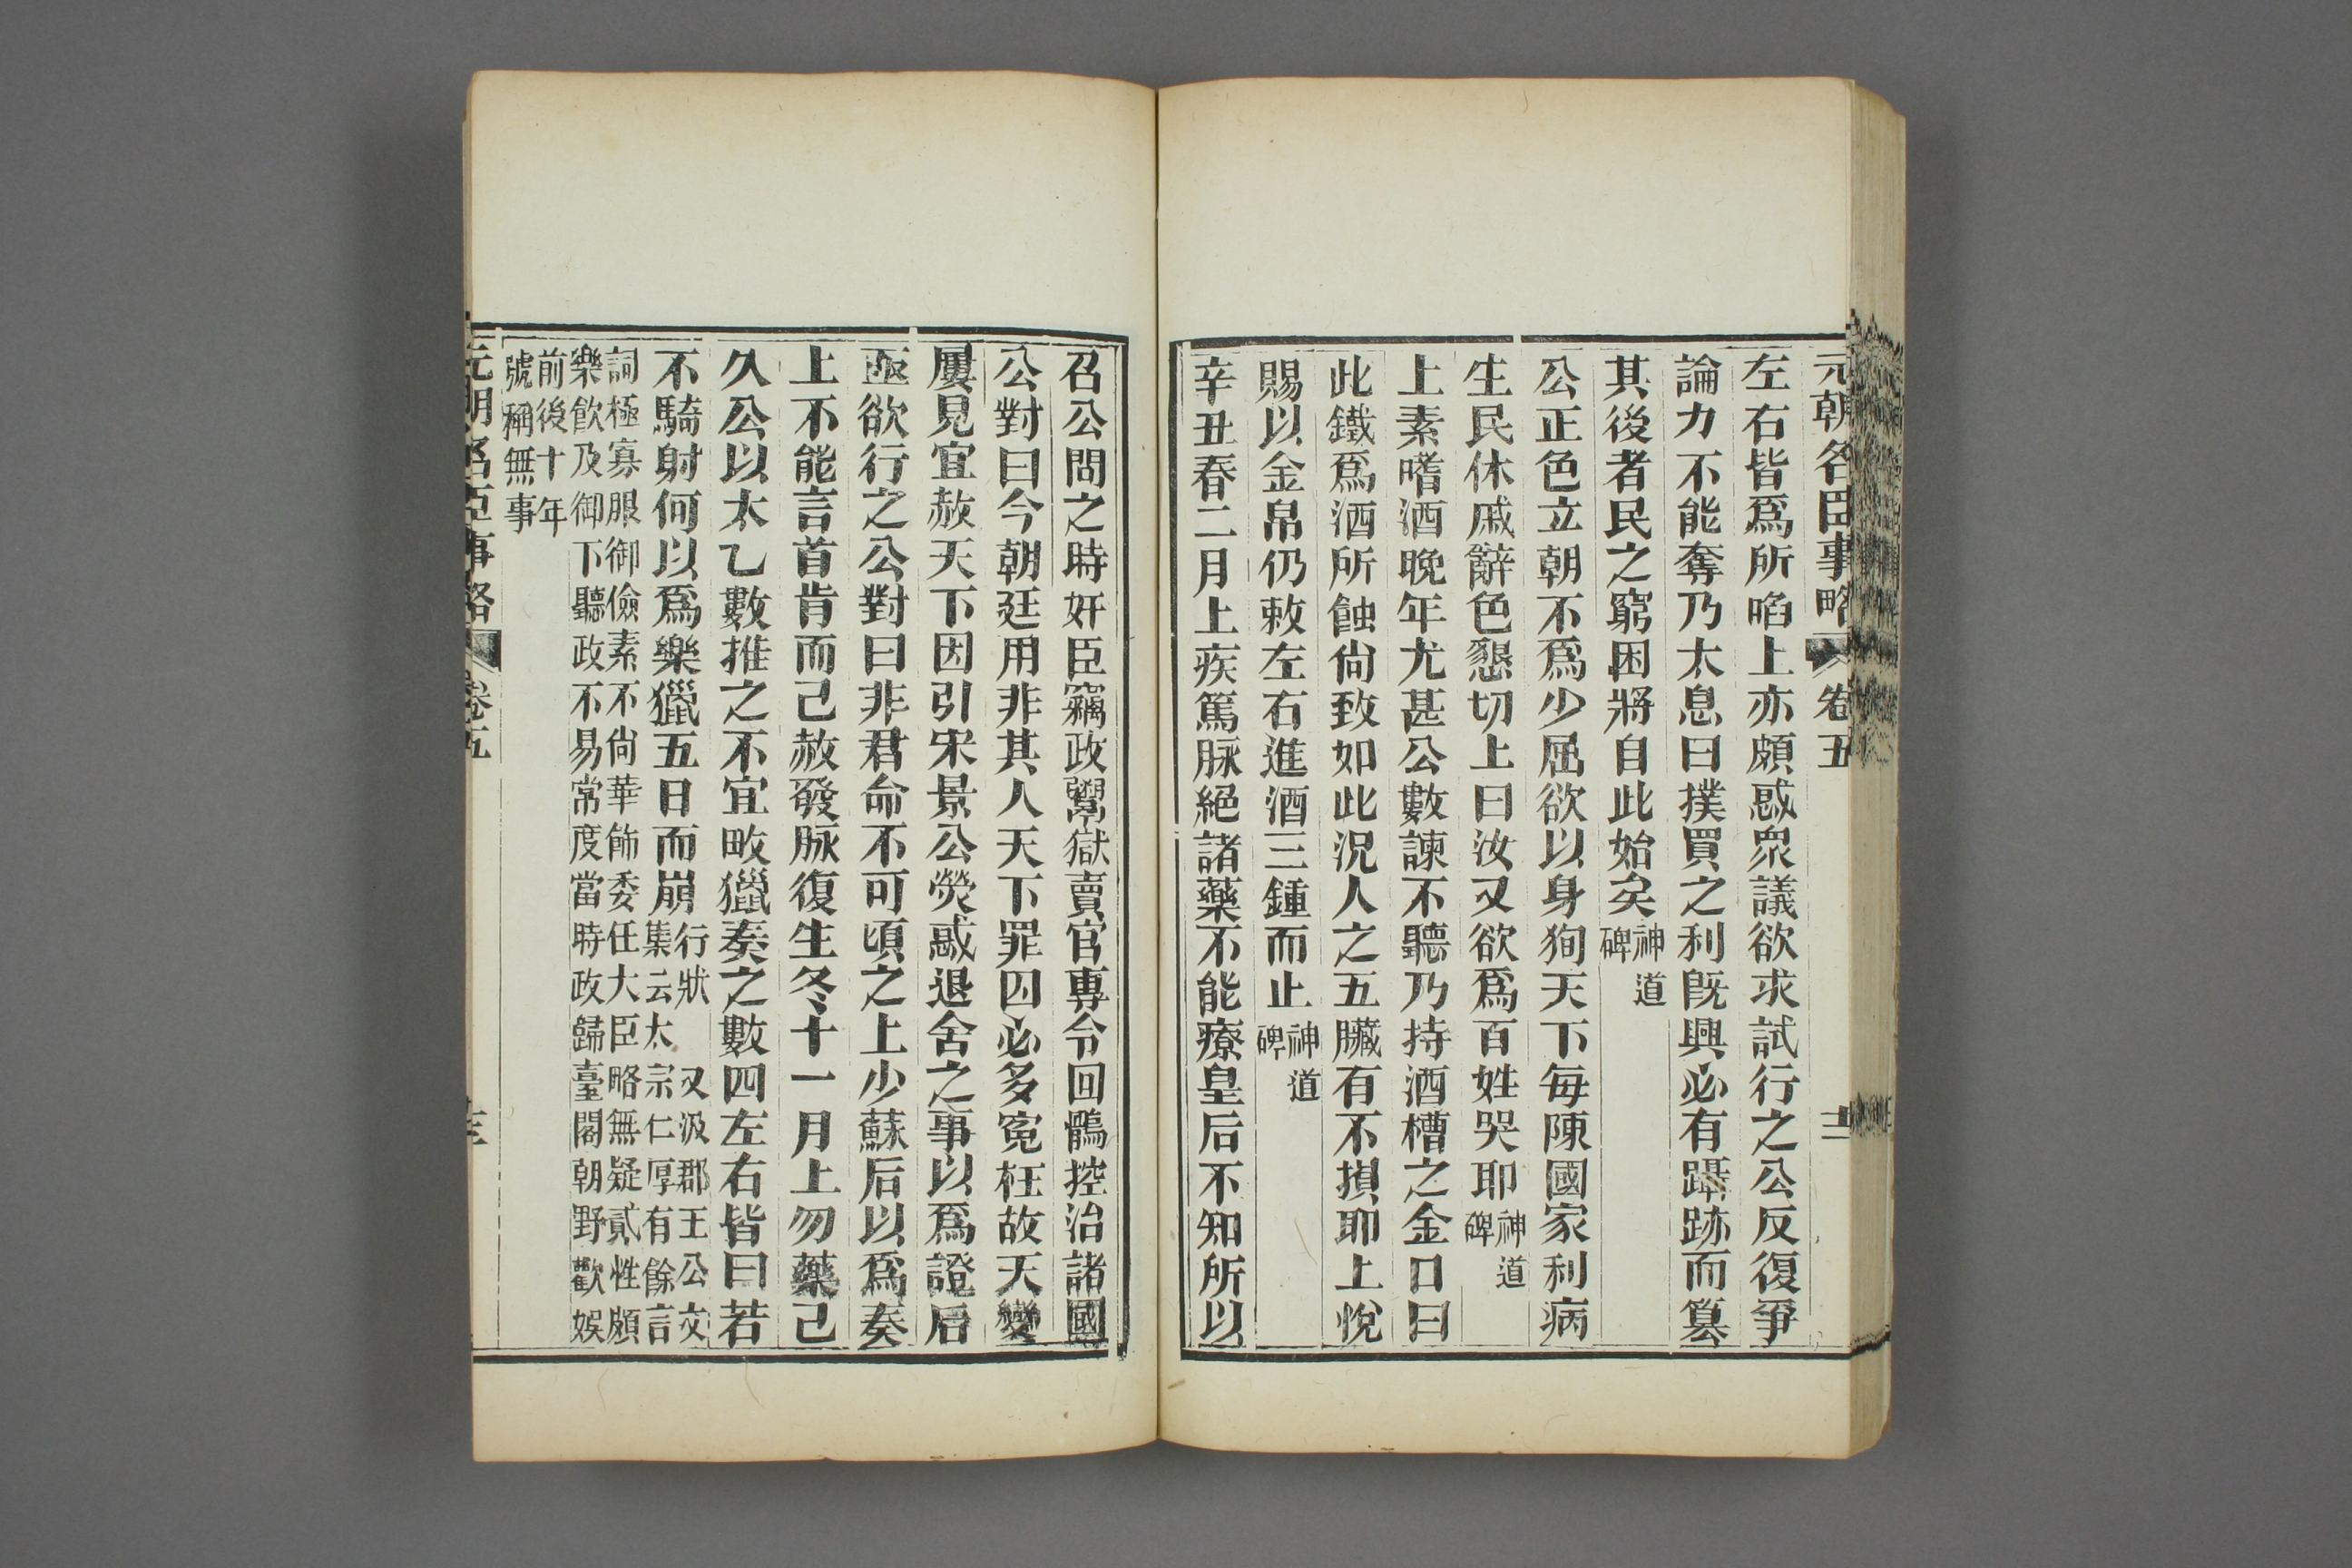 元朝名臣事略 卷五 十二
左右皆爲所啗上亦頗惑衆議欲求試行之公反復爭
論力不能奪乃太息曰撲買之利旣興必有躡跡而簒
其後者民之窮困將自此始矣神道碑
公正色立朝不爲少屈欲以身狥天下每陳國家利病
生民休戚辭色懇切上曰汝又欲爲百姓哭耶神道碑
上素嗜酒晚年尤甚公數諫不聽乃持酒槽之金口曰
此鐵爲酒所蝕尙致如此況人之五臟有不損耶上悅
賜以金帛仍敕左右進酒三鍾而止神道碑
辛丑春二月上疾篤脉絕諸藥不能療皇后不知所以
召公問之時奸臣竊政鬻獄賣官專令回鶻控治諸國
公對曰今朝廷用非其人天下罪囚必多寃枉故天變
屢見宜赦天下因引宋景公熒惑退舍之事以爲證后
亟欲行之公對曰非君命不可頃之上少蘇后以爲奏
上不能言首肯而已赦發脉復生冬十一月上勿藥已
久公以太乙數推之不宜畋獵奏之數四左右皆曰若
不騎射何以爲樂獵五日而崩行狀 又汲郡王公文
集云太宗仁厚有餘言
詞極寡服御儉素不尙華飾委任大臣略無疑貳性頗
樂飮及御下聽政不易常度當時政歸臺閣朝野歡娛
前後十年
號稱無事
元朝名臣事略 卷五 十三